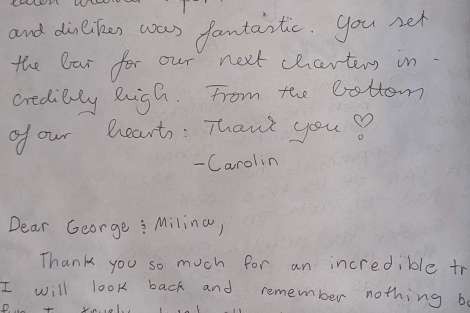 and dislikes was fantastic. You set
the bar for our next charters in-
credibly high. From the bottom
of our hearts: Thank you!
-Carolin
Dear George & Milina,
Thank you so much for an incredible tr
I will look back and remember nothing be